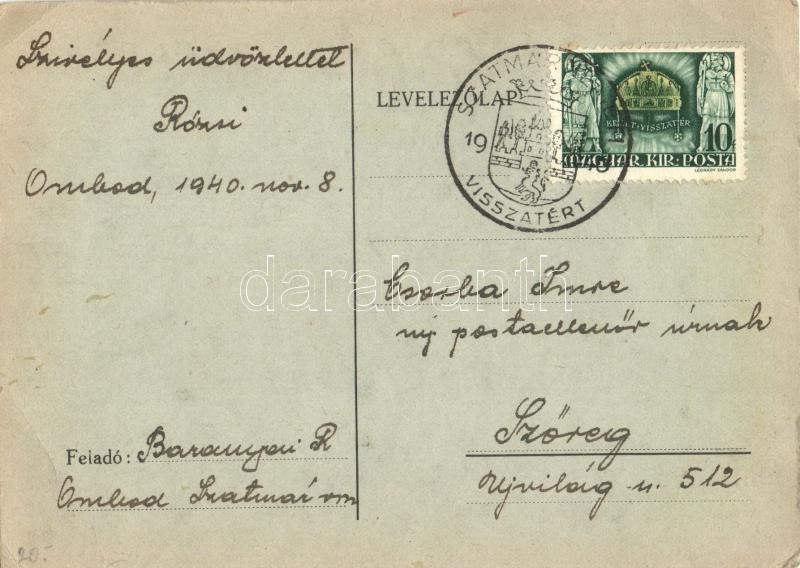 Szivélyes üdvözlettel
Rózsi
Ombod, 1940. nov. 8.
Feladó: Baranyai R
Ombod Szatmár vm
20.-
LEVELEZŐLAP
SZATMÁR
19 40
VISSZATÉRT
KELET-VISSZATÉR
10f
MAGYAR·KIR·POSTA
LÉGRÁDY SÁNDOR
darabanth
Csorba Imre
nyj postaellenőr úrnak
Szőreg
Ujvilág u. 512